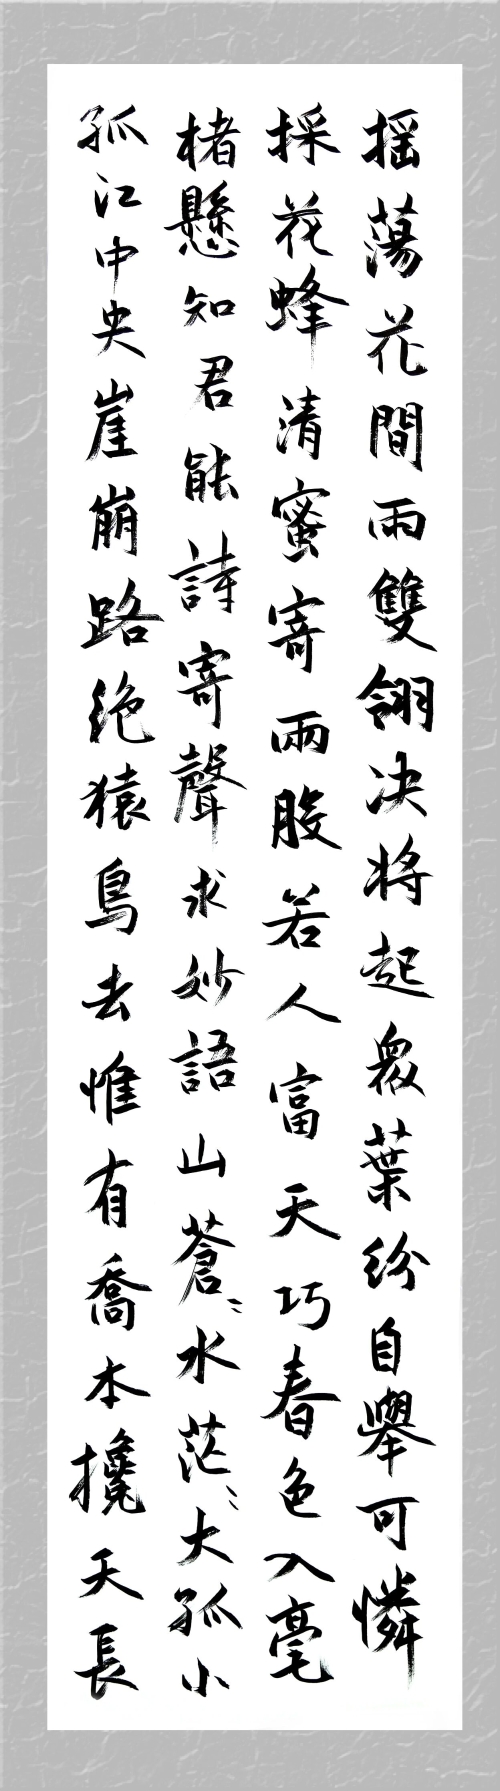 搖蕩花間雨雙翎决將起衆葉紛自舉可憐
採花蜂清蜜寄兩股若人富天巧春色入毫
楮懸知君能詩寄聲求妙語山蒼〻水茫〻大孤小
孤江中央崖崩路绝猿鳥去惟有喬本攙天長